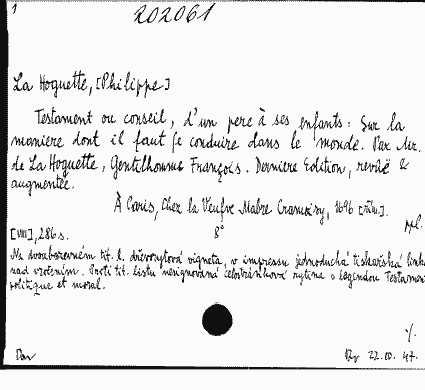 1
202061
La Hoguette, [Philippe]
Testament ou conseil, d'un pere à ses enfants: Sur la
maniere dont il faut se conduire dans le monde. Par Mr.
de La Hoguette, Gentilhomme François. Derniere Edition, revûë &
augmentée.
À Paris, Chez la Veufve Mabre Cramoisy, 1696
ppl.
[VIII], 286 s. 8°
Na dvoubarevném tit. l. dřevorytová vigneta, v impressu jednoduchá tiskařská linka
nad vročením. Proti tit. listu nesignovaná celostránková rytina s legendou Testament
politique et moral.
22.10.47.